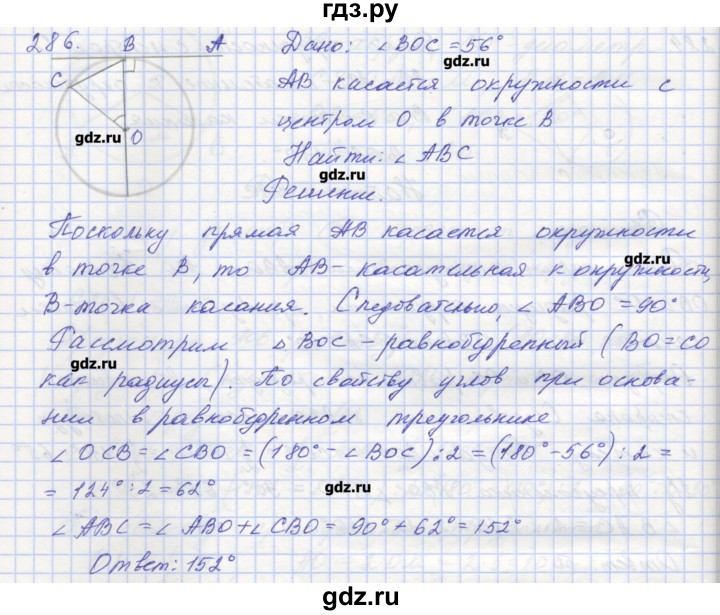 гдз.ру
286. B A Дано: ∠BOC = 56°
gdz.ru
C AB касается окружности с
gdz.ru O центром O в точке B
gdz.ru
Найти: ∠ABC
Решение.
Поскольку прямая AB касается окружности
gdz.ru
в точке B, то AB - касательная к окружности,
B - точка касания. Следовательно, ∠ABO = 90°
Рассмотрим △BOC - равнобедренный (BO = CO
gdz.ru
как радиусы). По свойству углов при основа-
нии в равнобедренном треугольнике
∠OCB = ∠CBO = (180° - ∠BOC) : 2 = (180° - 56°) : 2 =
= 124° : 2 = 62°
gdz.ru
∠ABC = ∠ABO + ∠CBO = 90° + 62° = 152°
Ответ: 152°
gdz.ru